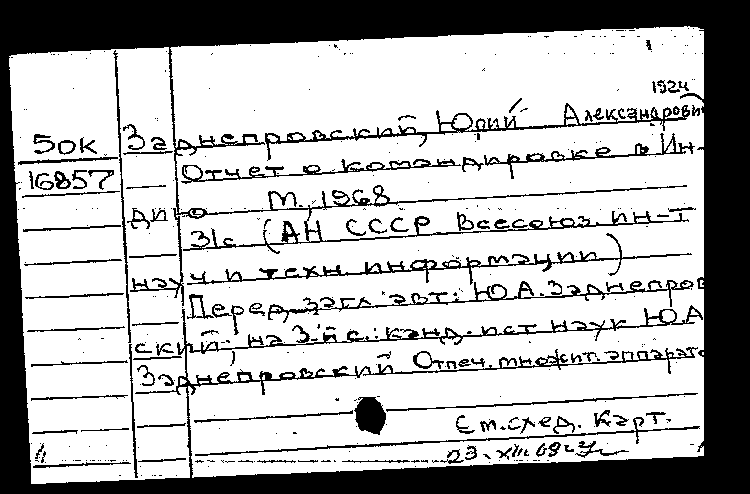 1924
50К Заднепровский, Юрий Александрови
16857 Отчет о командировке в Ин-
дию М., 1968
31с (АН СССР Всесоюз. ин-т
науч. и техн информации)
Перед загл. авт: Ю.А. Заднепров
ский; на 3-й с.: канд. ист наук Ю.А
Заднепровский Отпеч. множит. аппарат
См. след. карт.